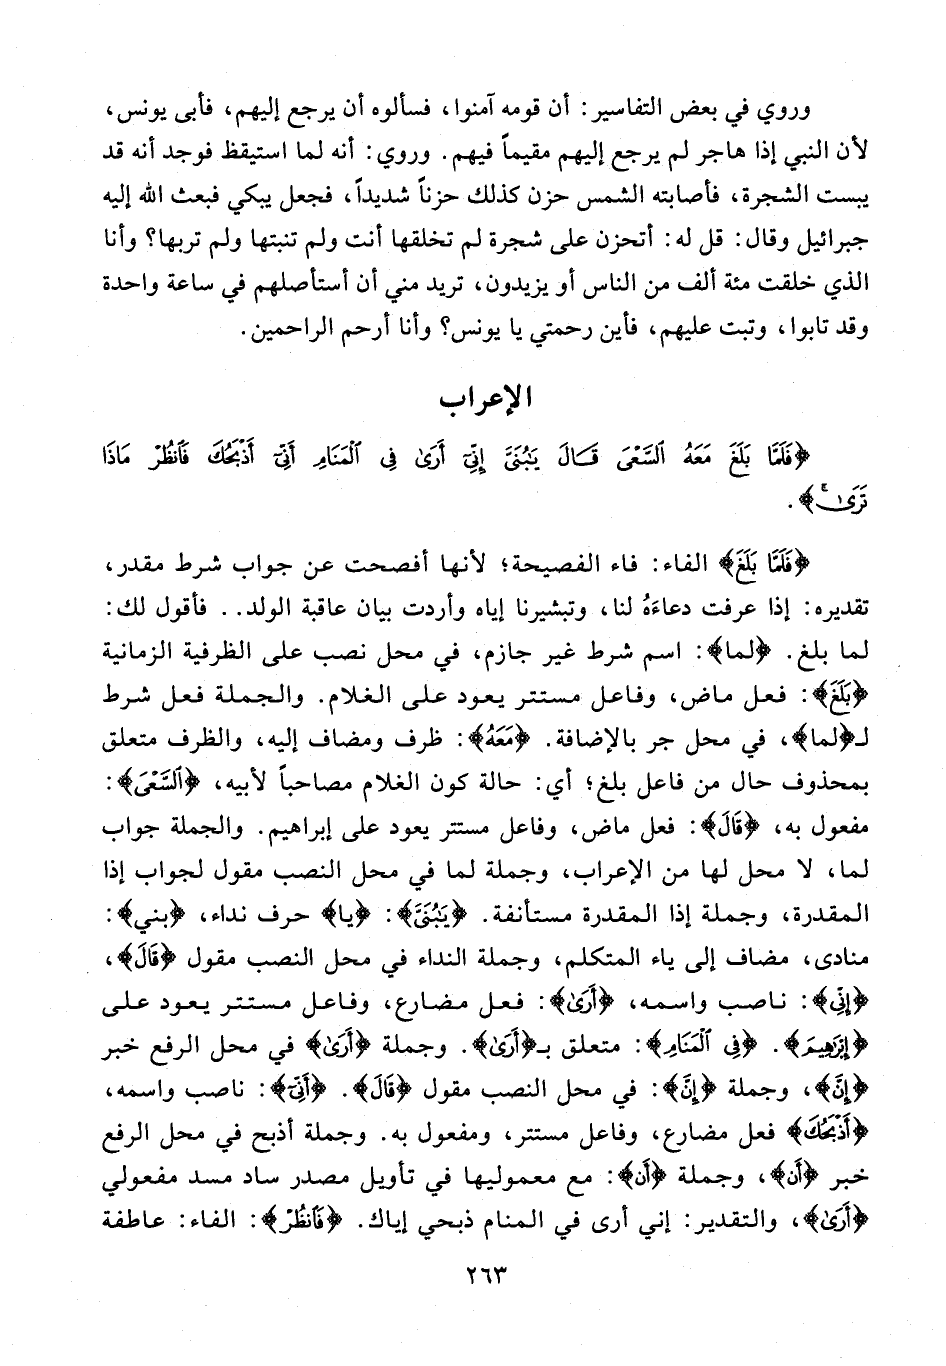 وروي في بعض التفاسير: أن قومه آمنوا، فسألوه أن يرجع إليهم، فأبى يونس،
لأن النبي إذا هاجر لم يرجع إليهم مقيماً فيهم. وروي: أنه لما استيقظ فوجد أنه قد
يبست الشجرة، فأصابته الشمس حزن كذلك حزناً شديداً، فجعل يبكي فبعث الله إليه
جبرائيل وقال: قل له: أتحزن على شجرة لم تخلقها أنت ولم تنبتها ولم تربها؟ وأنا
الذي خلقت مئة ألف من الناس أو يزيدون، تريد مني أن أستأصلهم في ساعة واحدة
وقد تابوا، وتبت عليهم، فأين رحمتي يا يونس؟ وأنا أرحم الراحمين.
الإعراب
﴿فَلَمَّا بَلَغَ مَعَهُ ٱلسَّعْىَ قَالَ يَٰبُنَىَّ إِنِّىٓ أَرَىٰ فِى ٱلْمَنَامِ أَنِّىٓ أَذْبَحُكَ فَٱنظُرْ مَاذَا
تَرَىٰۚ﴾.
﴿فَلَمَّا بَلَغَ﴾ الفاء: فاء الفصيحة؛ لأنها أفصحت عن جواب شرط مقدر،
تقديره: إذا عرفت دعاءَهُ لنا، وتبشيرنا إياه وأردت بيان عاقبة الولد.. فأقول لك:
لما بلغ. ﴿لما﴾: اسم شرط غير جازم، في محل نصب على الظرفية الزمانية
﴿بَلَغَ﴾: فعل ماض، وفاعل مستتر يعود على الغلام. والجملة فعل شرط
لـ﴿لما﴾، في محل جر بالإضافة. ﴿مَعَهُ﴾: ظرف ومضاف إليه، والظرف متعلق
بمحذوف حال من فاعل بلغ؛ أي: حالة كون الغلام مصاحباً لأبيه، ﴿ٱلسَّعْىَ﴾:
مفعول به، ﴿قَالَ﴾: فعل ماض، وفاعل مستتر يعود على إبراهيم. والجملة جواب
لما، لا محل لها من الإعراب، وجملة لما في محل النصب مقول لجواب إذا
المقدرة، وجملة إذا المقدرة مستأنفة. ﴿يَٰبُنَىَّ﴾: ﴿يا﴾ حرف نداء، ﴿بني﴾:
منادى، مضاف إلى ياء المتكلم، وجملة النداء في محل النصب مقول ﴿قَالَ﴾،
﴿إِنِّى﴾: ناصب واسمه، ﴿أَرَىٰ﴾: فعل مضارع، وفاعل مستتر يعود على
﴿إِبْرَٰهِيمَ﴾. ﴿فِى ٱلْمَنَامِ﴾: متعلق بـ﴿أَرَىٰ﴾. وجملة ﴿أَرَىٰ﴾ في محل الرفع خبر
﴿إِنَّ﴾، وجملة ﴿إِنَّ﴾: في محل النصب مقول ﴿قَالَ﴾. ﴿أَنِّىٓ﴾: ناصب واسمه،
﴿أَذْبَحُكَ﴾ فعل مضارع، وفاعل مستتر، ومفعول به. وجملة أذبح في محل الرفع
خبر ﴿أن﴾، وجملة ﴿أن﴾: مع معموليها في تأويل مصدر ساد مسد مفعولي
﴿أَرَىٰ﴾، والتقدير: إني أرى في المنام ذبحي إياك. ﴿فَٱنظُرْ﴾: الفاء: عاطفة
٢٦٣